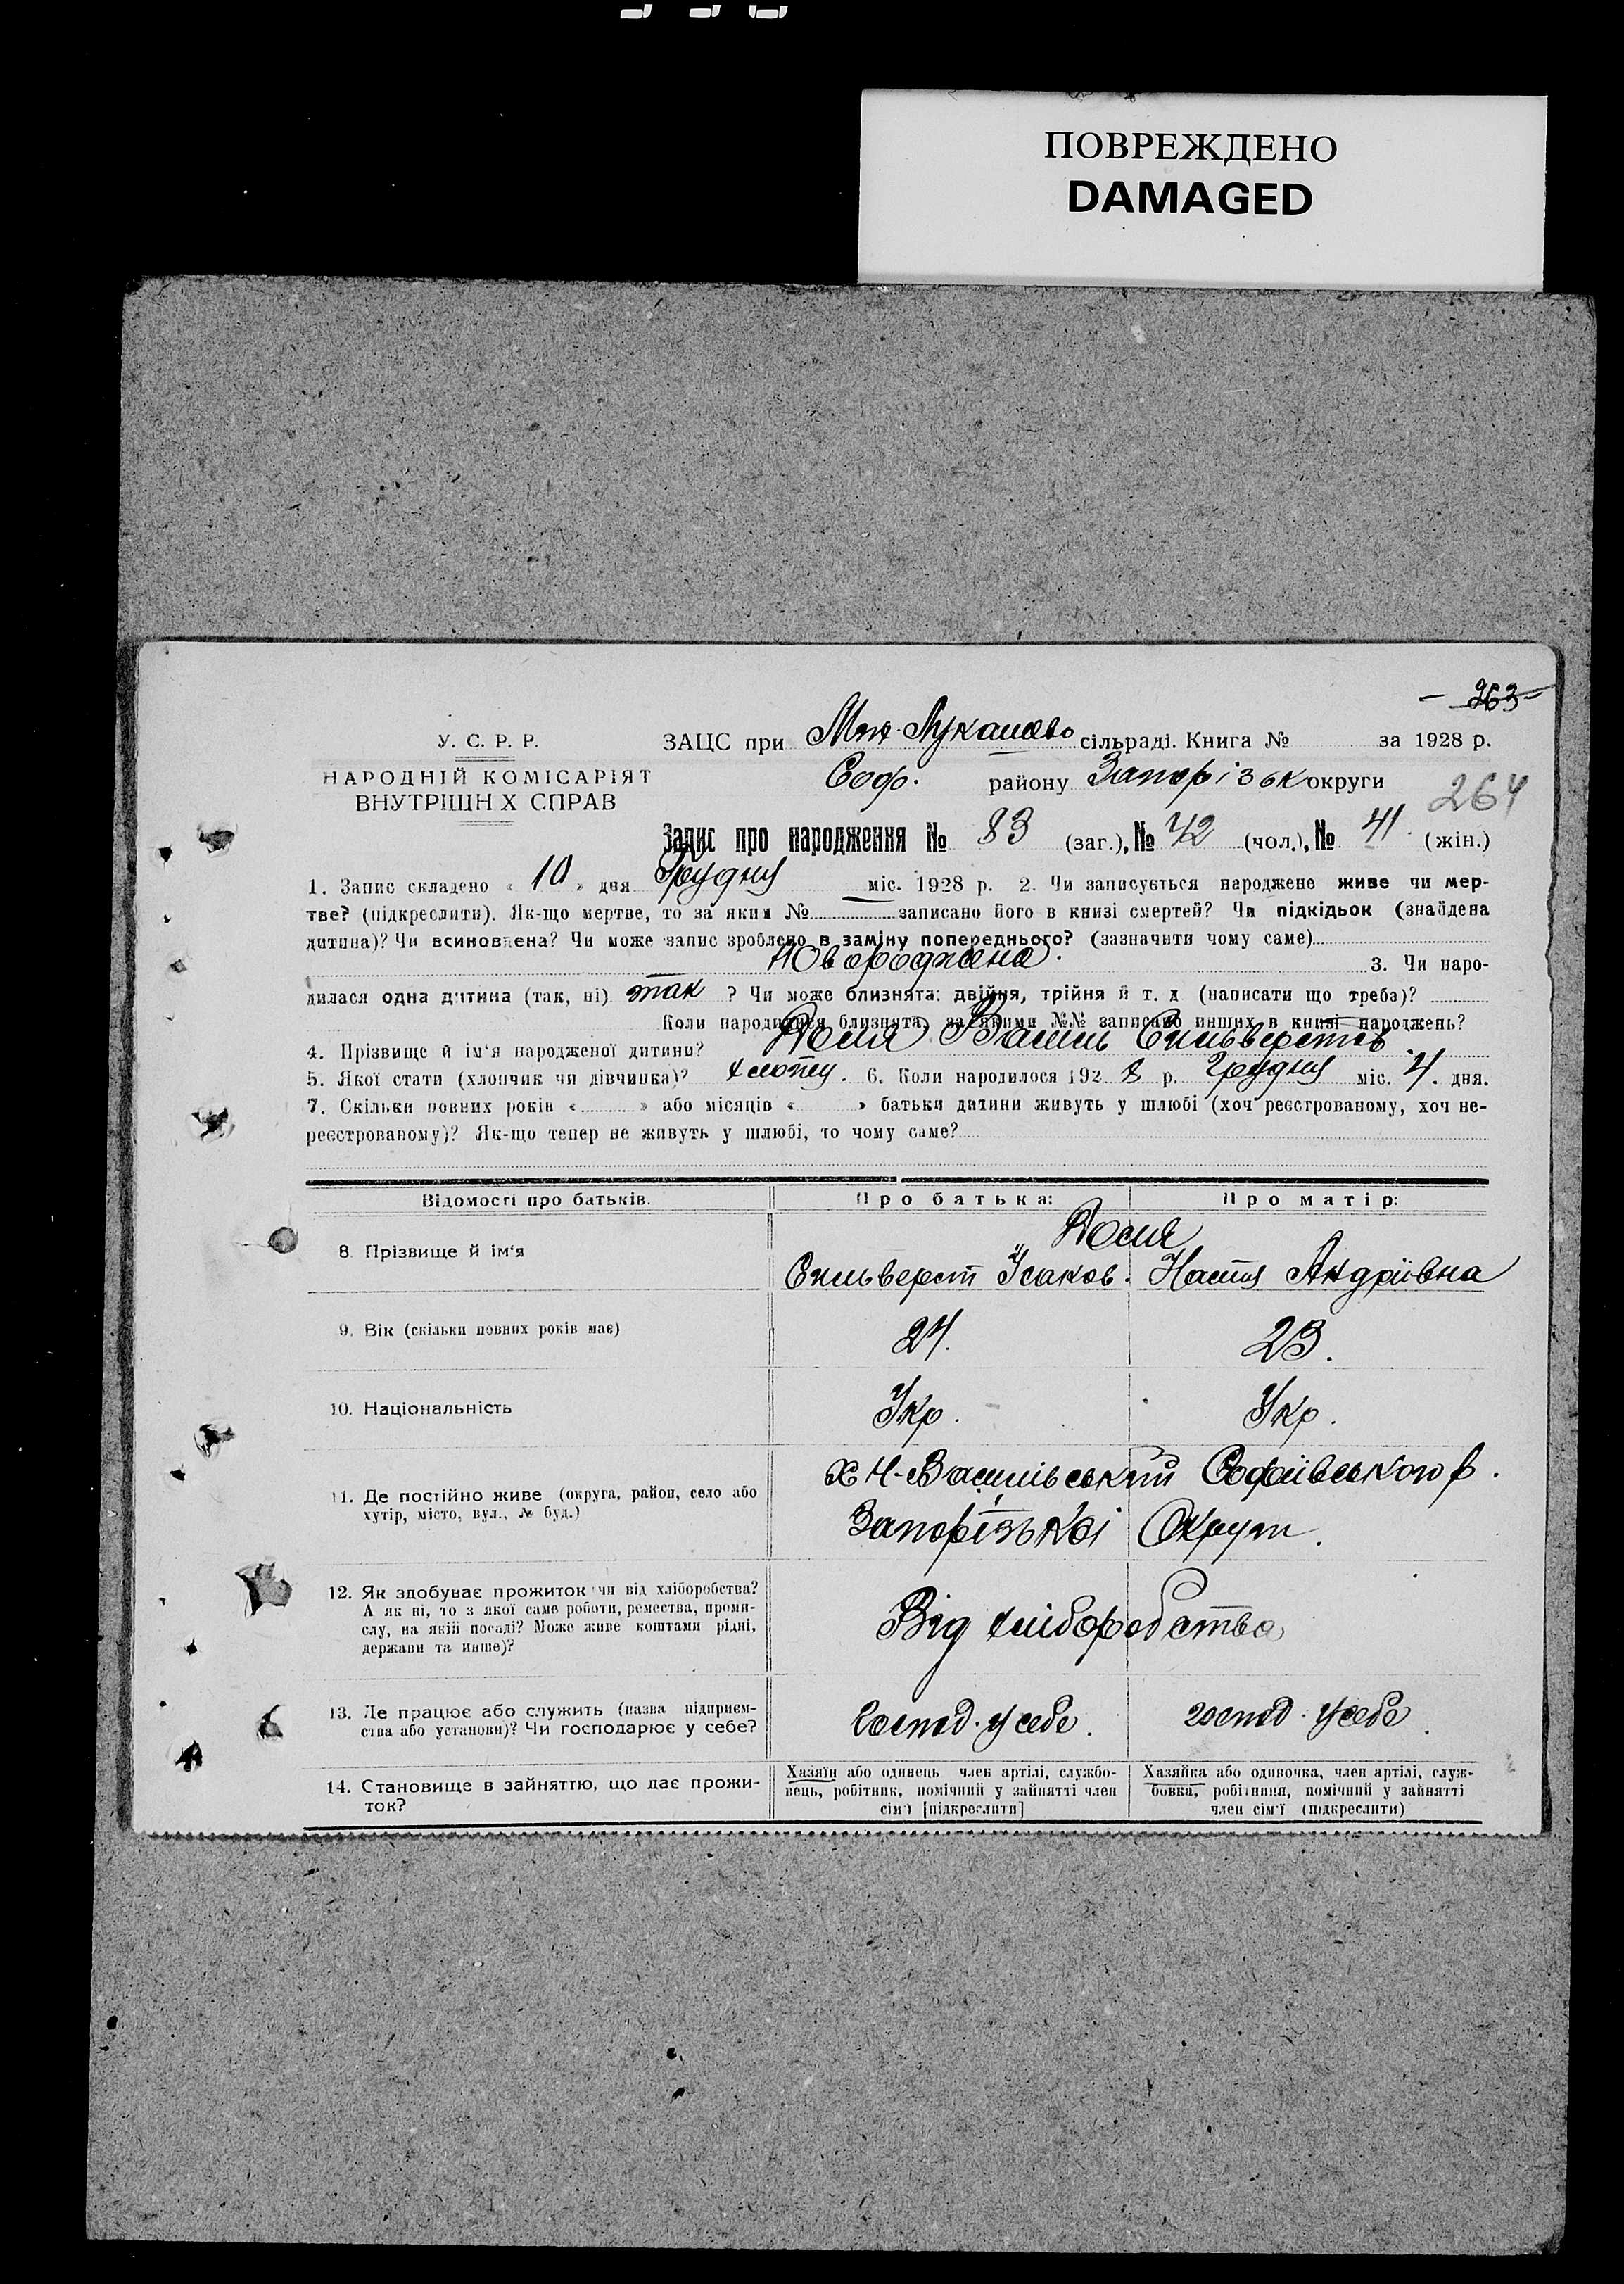 ПОВРЕЖДЕНО
DAMAGED
- 263 -
У. С. Р. Р.
НАРОДНІЙ КОМІСАРІЯТ
ВНУТРІШН Х СПРАВ
ЗАЦС при сільраді. Книга № за 1928 р.
Соф. району Запорізьк округи
264
Запис про народження № 83 (заг.), № 42 (чол.), № 41 (жін.)
1. Запис складено « 10 » дня Грудня міс. 1928 р. 2. Чи записується народжене живе чи мер-
тве? (підкреслити). Як-що мертве, то за яким № записано його в книзі смертей? Чи підкідьок (знайдена
дитина)? Чи всиновлена? Чи може запис зроблено в заміну попереднього? (зазначити чому саме)
Новороджена. 3. Чи наро-
дилася одна дитина (так, ні) так ? Чи може близнята: двійня, трійня й т. д (написати що треба)?
Коли народилися близнята, за якими №№ записано инших в книзі народжень?
4. Прізвище й ім'я народженої дитини? Василь Сильверстов
5. Якої стати (хлопчик чи дівчинка)? хлопец. 6. Коли народилося 192 8 р. Грудня міс. 4. дня.
7. Скільки повних років « » або місяців « » батьки дитини живуть у шлюбі (хоч реєстрованому, хоч не-
реєстрованому)? Як-що тепер не живуть у шлюбі, то чому саме?
Відомості про батьків. Про батька: Про матір:
8. Прізвище й ім'я
Сильверст Ісаков. Настя Андріївна
9. Вік (скільки повних років має) 24. 23.
10. Національність Укр. Укр.
11. Де постійно живе (округа, район, село або
хутір, місто, вул., № буд.)
х Н-Василівський Софіївського р.
Запорізькоі Округи.
12. Як здобуває прожиток чи від хліборобства?
А як ні, то з якої саме роботи, ремества, проми-
слу, на якій посаді? Може живе коштами рідні,
держави та инше)?
Від хліборобства
13. Де працює або служить (назва підприєм-
ства або установи)? Чи господарює у себе?
господ. у себе. господ. у себе.
14. Становище в зайняттю, що дає прожи-
ток?
Хазяїн або одинець член артілі, службо-
вець, робітник, помічний у зайнятті член
сім'ї [підкреслити]
Хазяйка або одиночка, член артілі, служ-
бовка, робітниця, помічний у зайнятті
член сім'ї (підкреслити)